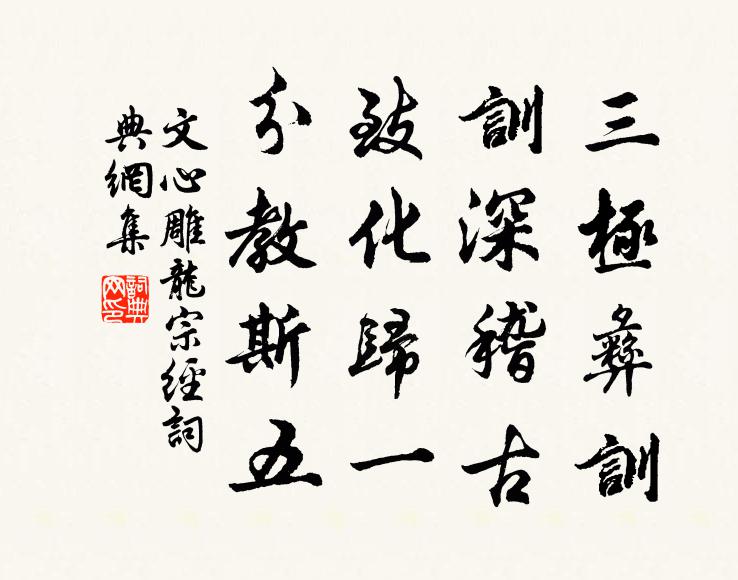 三極彝訓
訓深稽古
致化歸一
分教斯五
文心雕龍宗經詞
典網集
詞典网印